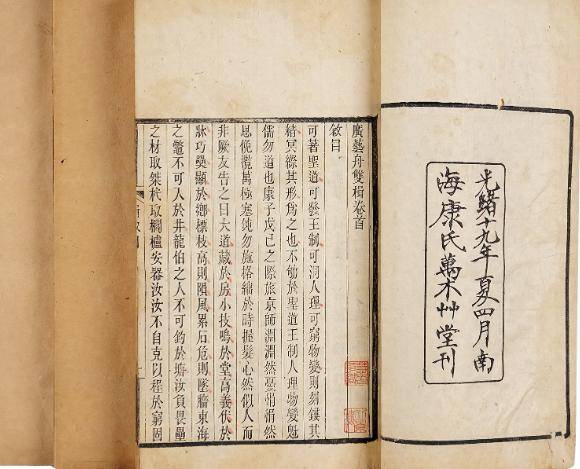 光緒十九年夏四月南
海康氏萬木艸堂刊
廣藝舟雙楫卷首
敘目
可著聖道可發王制可洞人理可窮物變則刻鏤其
精冥縒其形爲之也不劬於聖道王制人理物變魁
儒勿道也康子戊己之際旅京師淵淵然憂悁悁然
思俛攬萬極塞鈍勿施格絀於時握髮然似人而
非厥友告之曰大道藏於房小技鳴於堂高義伏於
牀巧奰顯於鄉標枝高則隕風累石危則墜牆東海
之鼈不可入於井龍伯之人不可釣於塘汝負畏壘
之材取桀杙取欂櫨安器汝汝不自克以程於窮固